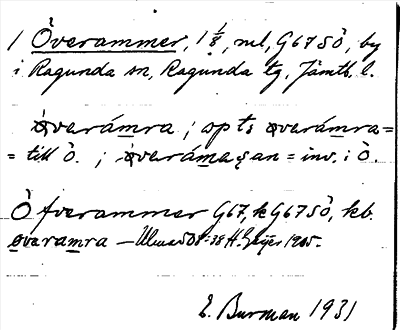 1 Överammer, 1 1/8, ml, G67SÖ, by
i Ragunda sn, Ragunda tg, Jämtl. l.
överámra; op ts överámra=
= till Ö.; överámaṣan = inv. i Ö.
Öfverammer G67, kG67SÖ, kb.
överamra — H. Geijer 1905.
E. Burman 1931